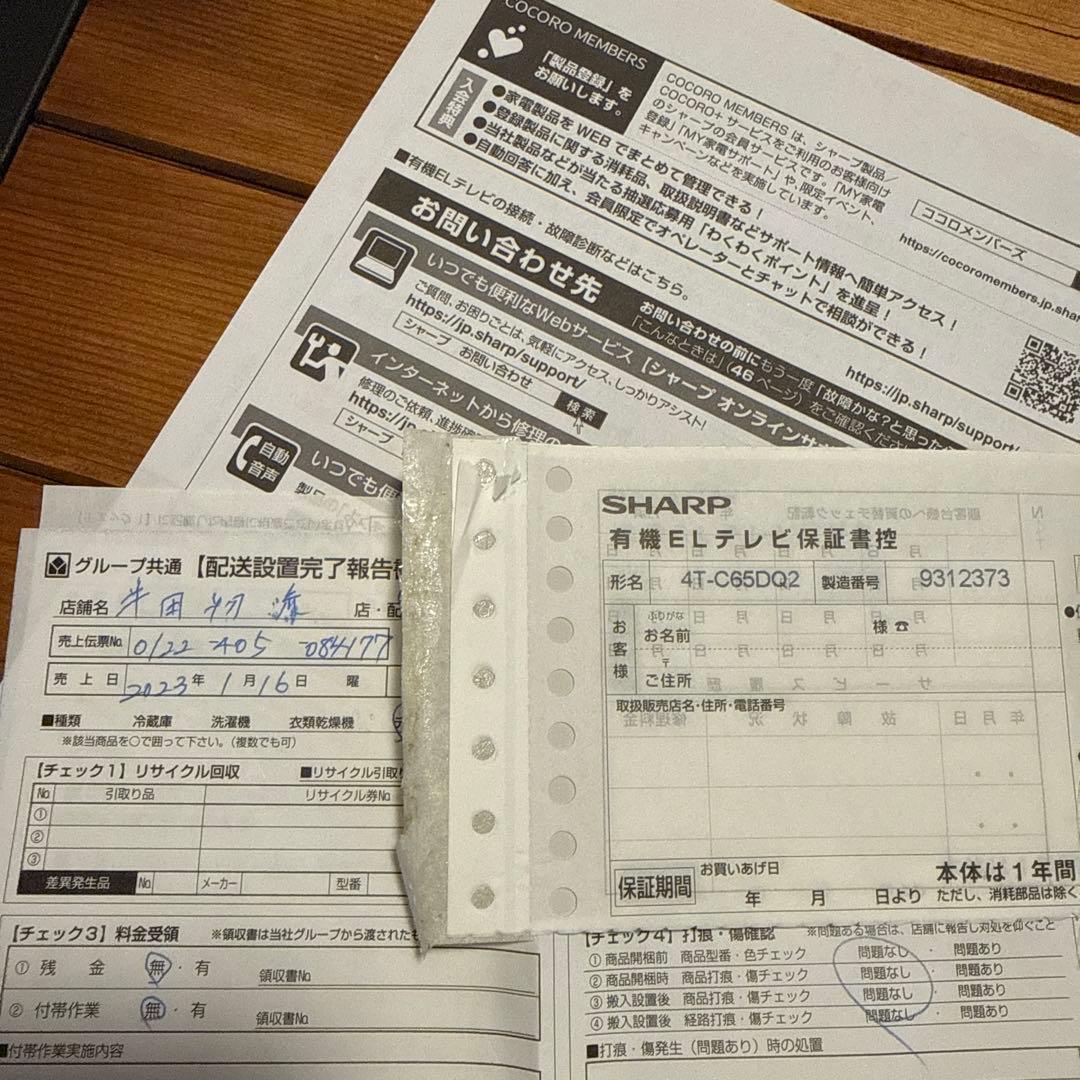 COCORO MEMBERS
「製品登録」を
お願いします。
COCORO MEMBERS は、シャープ製品／
COCORO+ サービスをご利用のお客様向け
のシャープの会員サービスです。「MY家電
登録」「MY家電サポート」や、限定イベント、
キャンペーンなどを実施しています。
入会特典
●家電製品を WEB でまとめて管理できる！
●登録製品に関する消耗品、取扱説明書などサポート情報へ簡単アクセス！
●当社製品などが当たる抽選応募用「わくわくポイント」を進呈！
●自動回答に加え、会員限定でオペレーターとチャットで相談ができる！
ココロメンバーズ
https://cocoromembers.jp.shar
■有機ELテレビの接続・故障診断などはこちら。
https://jp.sharp/support/
お問い合わせ先
お問い合わせの前にもう一度「故障かな？と思った
「こんなときは」(46 ページ) をご確認くださ
いつでも便利なWebサービス【シャープ オンラインサ
ご質問、お困りごとは、気軽にアクセス、しっかりアシスト!
https://jp.sharp/support/
シャープ お問い合わせ
検索
インターネットから修理の
修理のご依頼、進捗確
https://jp.
シャープ
自動
音声
いつでも便
グループ共通 【配送設置完了報告
店舗名
店・配
売上伝票No. 0122-405-084177
売上日 2023年1月16日 曜
■種類 冷蔵庫 洗濯機 衣類乾燥機
※該当商品を○で囲って下さい。（複数でも可）
【チェック1】リサイクル回収 ■リサイクル引取
No. 引取り品 リサイクル券No.
①
②
③
差異発生品 No. メーカー 型番
【チェック3】料金受領 ※領収書は当社グループから渡されたも
① 残金 無・有 領収書No.
② 付帯作業 無・有 領収書No.
■付帯作業実施内容
SHARP
有機ELテレビ保証書控
形名 4T-C65DQ2 製造番号 9312373
お客様
ふりがな
お名前 様 ☎
〒
ご住所
取扱販売店名・住所・電話番号
保証期間
お買いあげ日
年 月 日より
本体は1年間
ただし、消耗部品は除く
【チェック4】打痕・傷確認 ※問題ある場合は、店舗に報告し対処を仰ぐこと
① 商品開梱前 商品型番・色チェック 問題なし ・ 問題あり
② 商品開梱時 商品打痕・傷チェック 問題なし ・ 問題あり
③ 搬入設置後 商品打痕・傷チェック 問題なし ・ 問題あり
④ 搬入設置後 経路打痕・傷チェック 問題なし ・ 問題あり
■打痕・傷発生（問題あり）時の処置